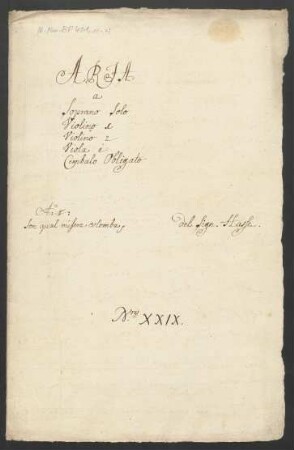 ARIA
a
Soprano Solo
Violino 1
Violino 2
Viola è
Cimbalo Obligato
Aria:
Son qual misera colomba
del Sign. Hasse.
Nro XXIX.